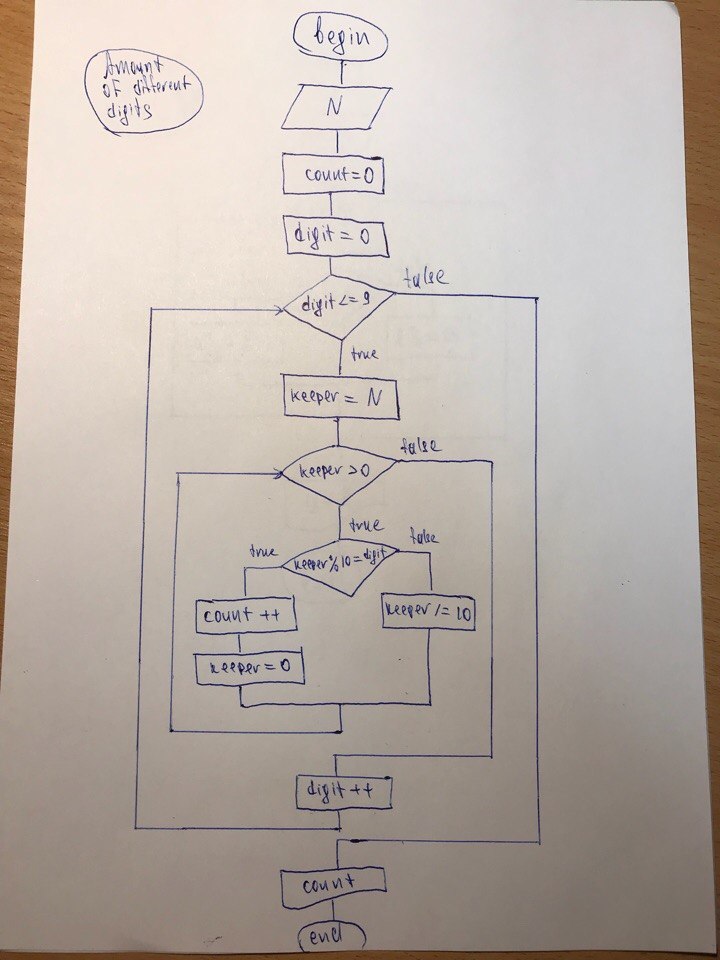 begin
Amount
of different
digits
N
count=0
digit = 0
digit <= 9
false
true
keeper = N
keeper >0
false
true
keeper%10=digit
true
false
count ++
keeper /= 10
keeper = 0
digit ++
count
end